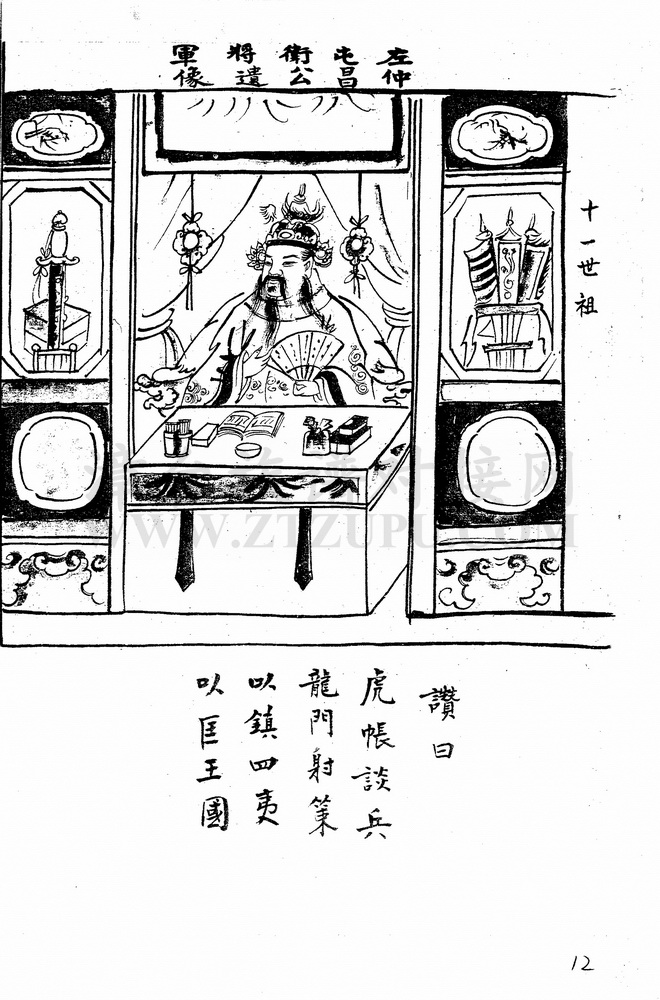 左屯衛將軍
仲昌公遺像
十一世祖
讚曰
虎帳談兵
龍門射策
以鎮四夷
以匡王國
WWW.ZTZUPU.COM
12